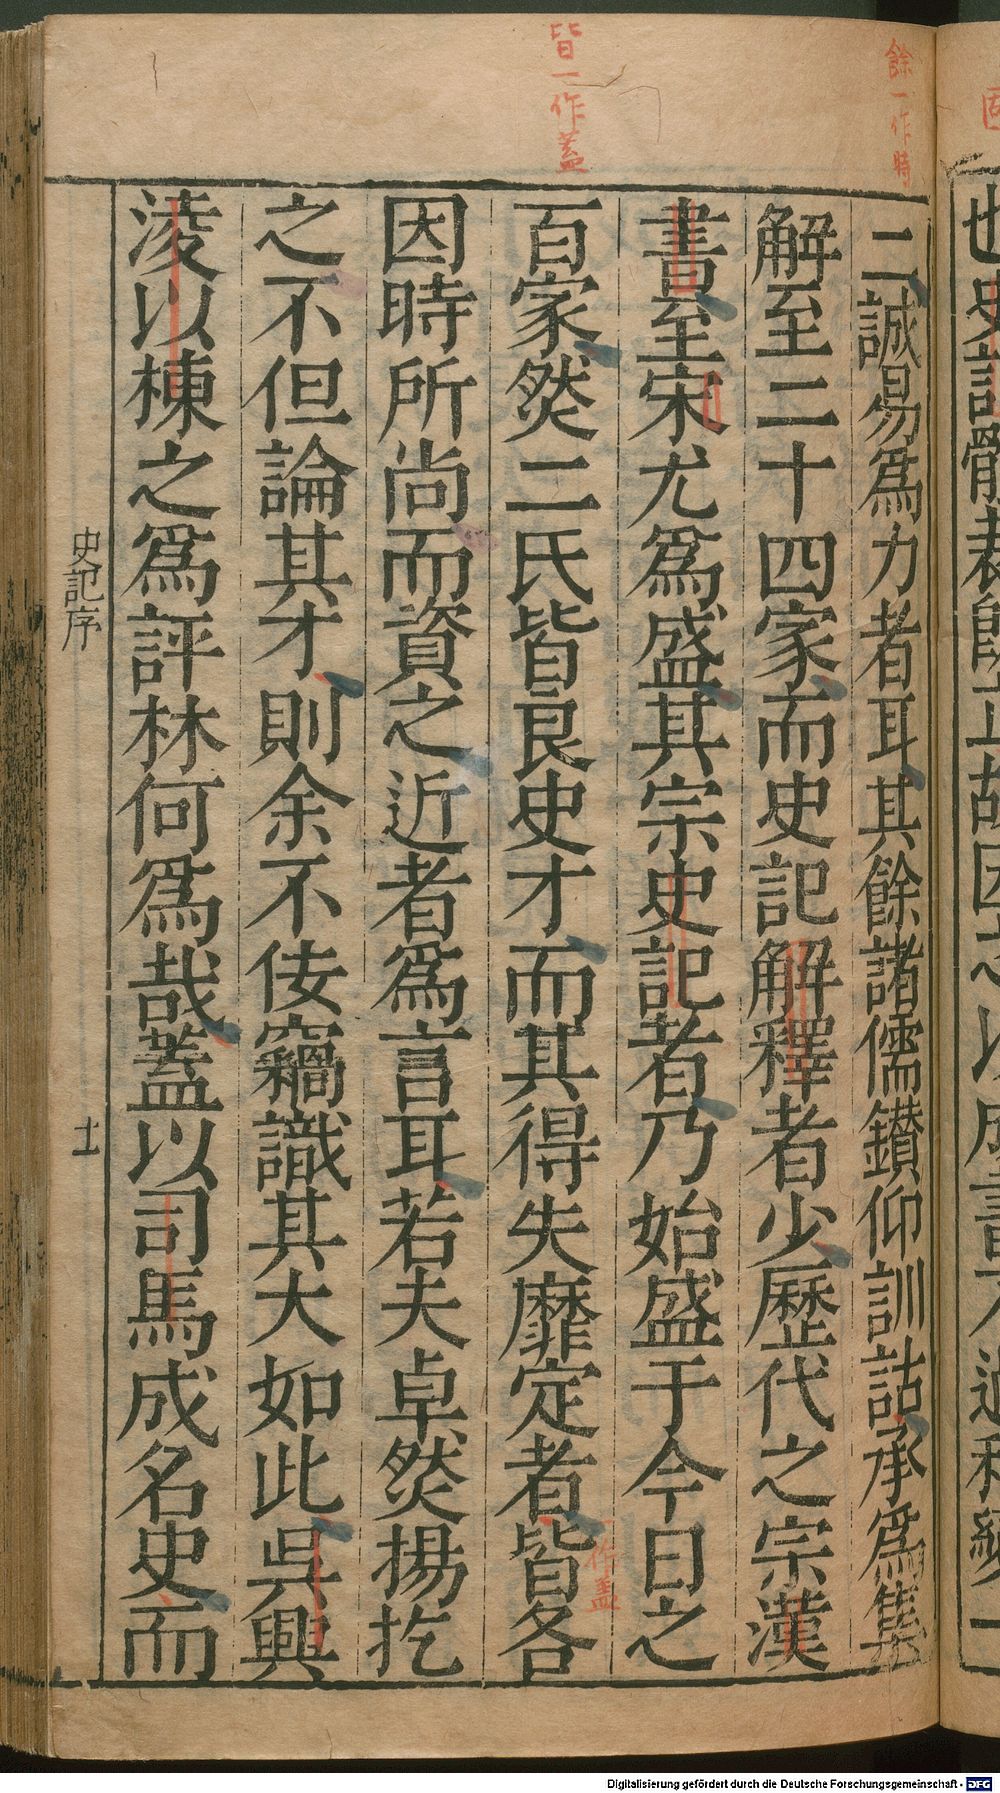 餘一作時
皆一作蓋
二誠易爲力者耳其餘諸儒鑚仰訓詁承爲集
解至二十四家而史記解釋者少歷代之宗漢
書至宋尤爲盛其宗史記者乃始盛于今日之
百家然二氏皆良史才而其得失靡定者皆各
一作蓋
因時所尚而資之近者爲言耳若夫卓然揚扢
之不但論其才則余不佞竊識其大如此吳興
淩以棟之爲評林何爲哉蓋以司馬成名史而
史記序
十一
Digitalisierung gefördert durch die Deutsche Forschungsgemeinschaft - DFG